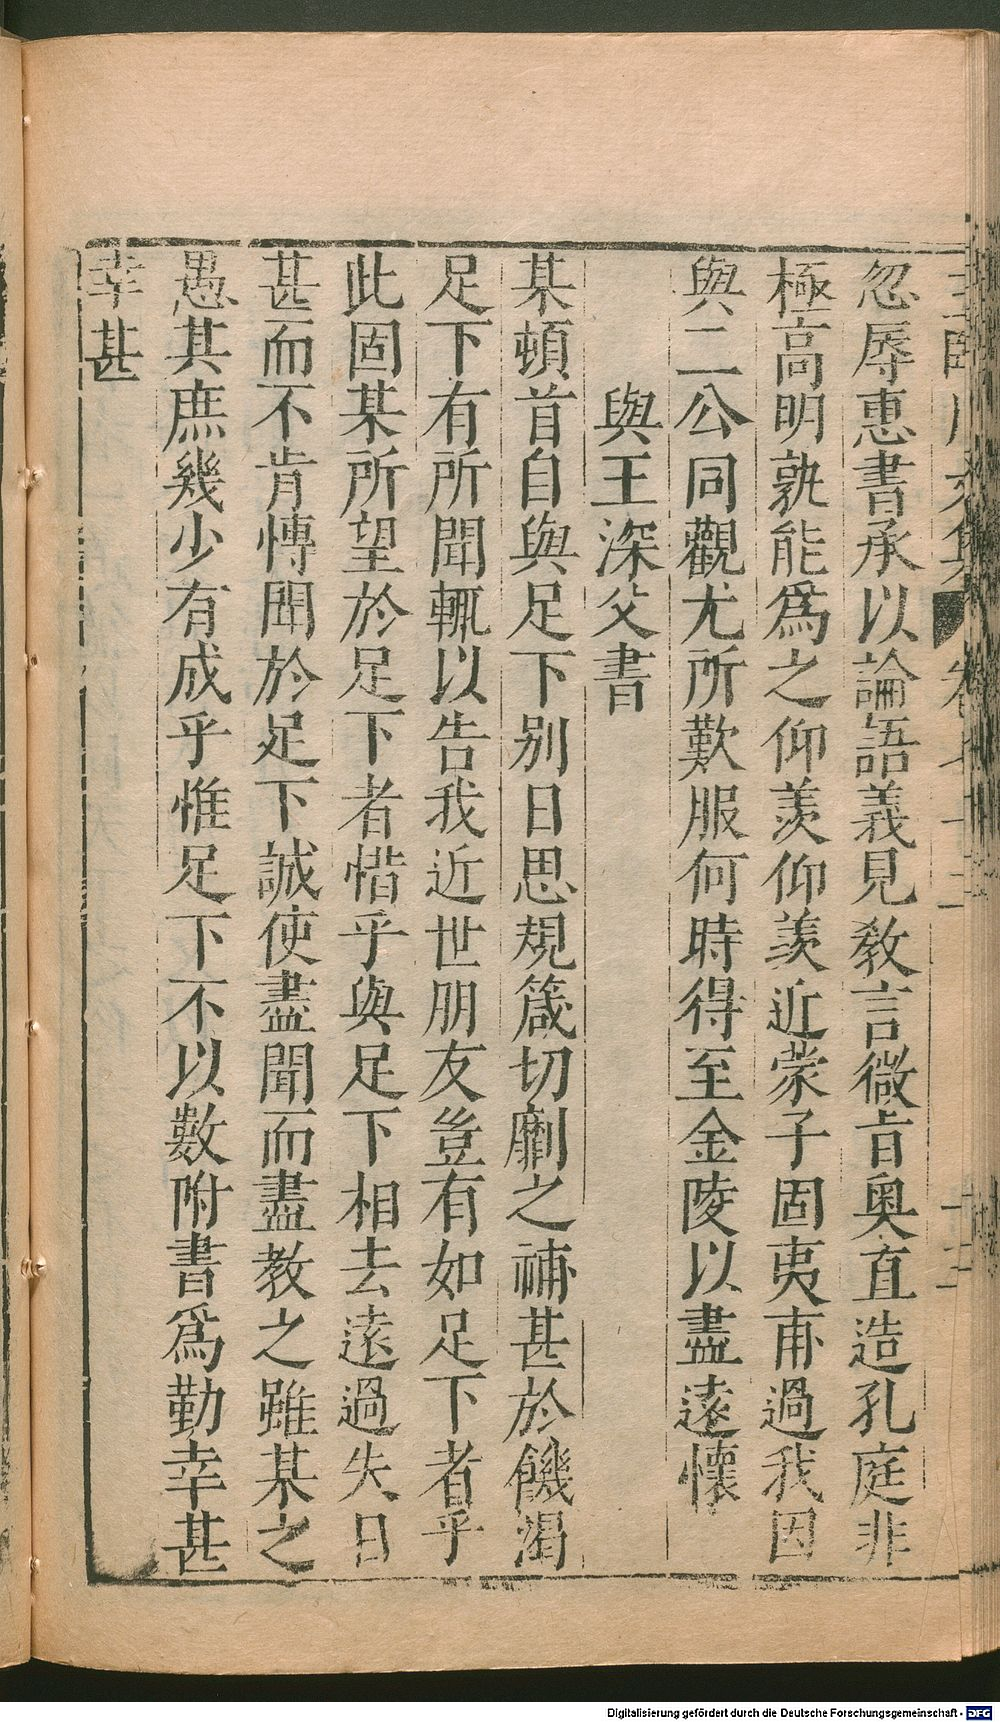 王臨川文集 卷七十二
忽辱惠書承以論語義見敎言微旨奧直造孔庭非
極高明孰能爲之仰羨仰羨近蒙子固夷甫過我因
與二公同觀尤所歎服何時得至金陵以盡遠懷
與王深父書
某頓首自與足下別日思規箴切劘之補甚於饑渴
足下有所聞輒以告我近世朋友豈有如足下者乎
此固某所望於足下者惜乎與足下相去遠過失日
甚而不肯慱聞於足下誠使盡聞而盡教之雖某之
愚其庶幾少有成乎惟足下不以數附書爲勤幸甚
幸甚
Digitalisierung gefördert durch die Deutsche Forschungsgemeinschaft - DFG